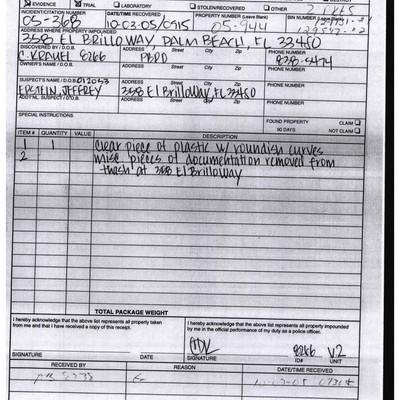 EVIDENCE TRIAL LABORATORY STOLEN/RECOVERED OTHER
INCIDENT/CITATION NUMBER DATE/TIME RECOVERED PROPERTY NUMBER (Leave Blank) BIN NUMBER
05-368 10.03.05/0915 05-944
ADDRESS WHERE PROPERTY IMPOUNDED
358 EL BRILLOWAY PALM BEACH, FL 33480
DISCOVERED BY/D.O.B. ADDRESS Street City Zip PHONE NUMBER
PBPD
OWNER'S NAME/D.O.B. ADDRESS Street City Zip PHONE NUMBER
SUSPECT'S NAME/D.O.B. 012053 ADDRESS Street City Zip PHONE NUMBER
EPSTEIN, JEFFREY 358 El BrilloWay, FL 33480
ADDRESS Street City Zip PHONE NUMBER
SPECIAL INSTRUCTIONS
FOUND PROPERTY CLAIM
90 DAYS NOT CLAIM
ITEM # QUANTITY VALUE DESCRIPTION
1 1 clear piece of plastic w/ roundish curves
2 misc pieces of documentation removed from
trash at 358 El BrilloWay
TOTAL PACKAGE WEIGHT
I hereby acknowledge that the above list represents all property taken from me and that I have received a copy of this receipt.
I hereby acknowledge that the above list represents all property impounded by me in the official performance of my duty as a police officer.
8266 V.2
SIGNATURE DATE SIGNATURE ID# UNIT
RECEIVED BY REASON DATE/TIME RECEIVED